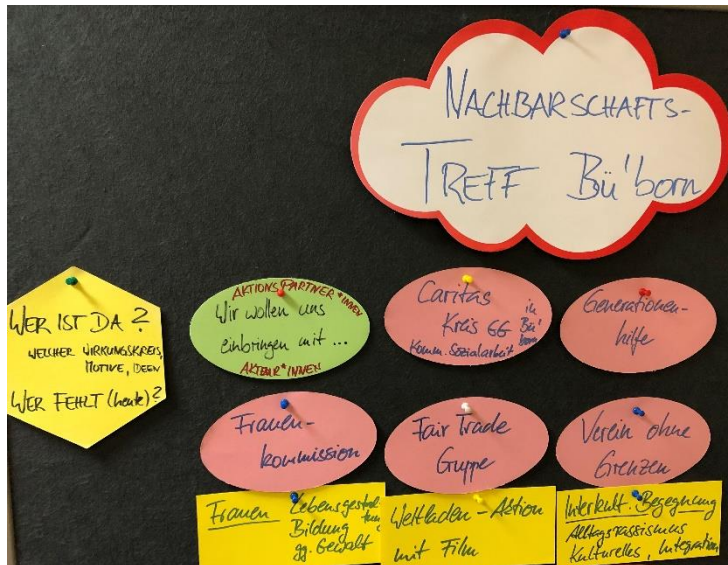 NACHBARSCHAFTS-
TREFF Bü'born
WER IST DA?
WELCHER WIRKUNGSKREIS,
MOTIVE, IDEEN
WER FEHLT (heute)?
AKTIONSPARTNER*INNEN
Wir wollen uns
einbringen mit ...
AKTEUR*INNEN
Caritas
Kreis GG in Bü'born
Komm. Sozialarbeit
Generationen-
hilfe
Frauen-
kommission
Fair Trade
Gruppe
Verein ohne
Grenzen
Frauen Lebensgestaltung
Bildung
gg. Gewalt
Weltladen-Aktion
mit Film
Interkult. Begegnung
Alltagsrassismus
Kulturelles, Integration